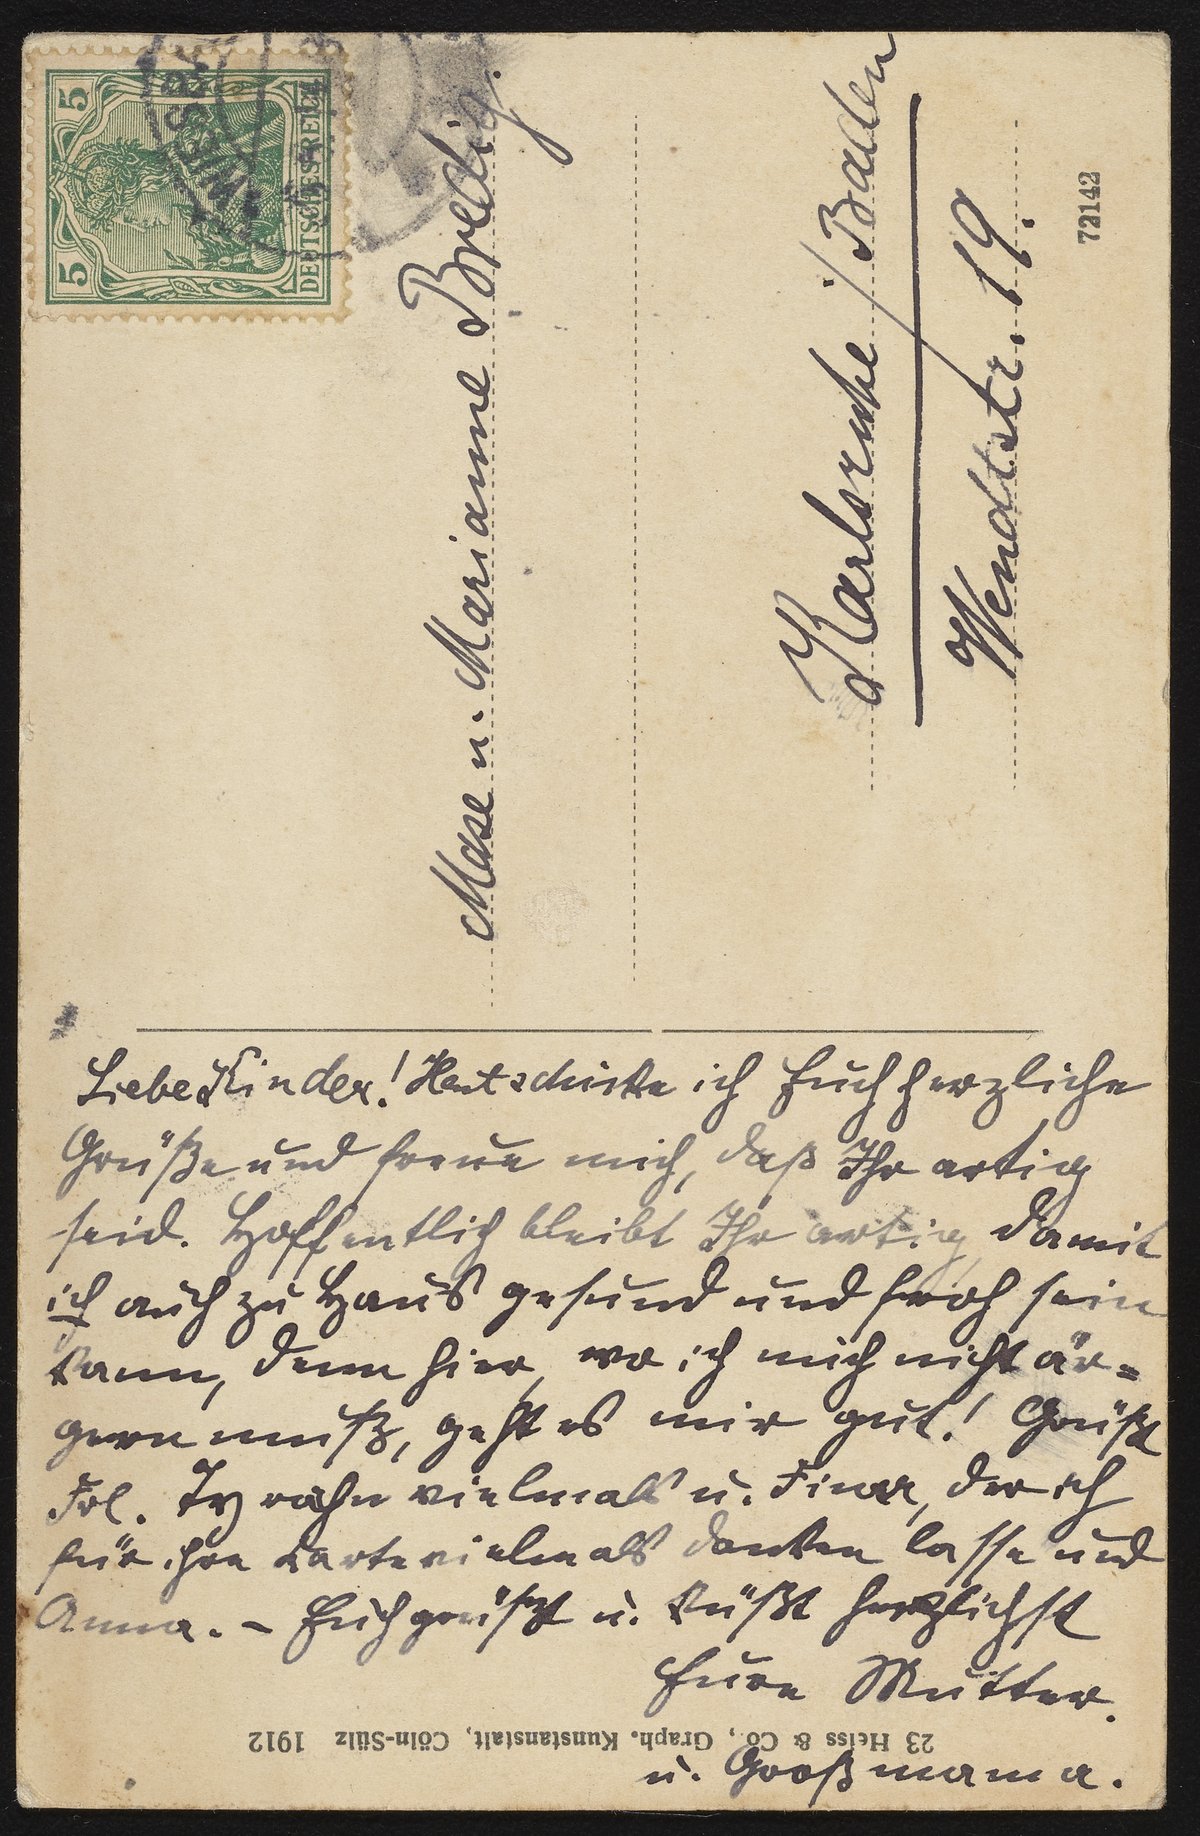 5
5
DEUTSCHES REICH
Maxe u. Marianne Bredig.
Karlsruhe i/Baden
Wendtstr. 19.
72142
Liebe Kinder! Heut schicke ich Euch herzliche
Grüße und freue mich, daß Ihr artig
seid. Hoffentlich bleibt Ihr artig, damit
ich auch zu Haus gesund und froh sein
kann, denn hier, wo ich mich nicht är=
gern muß, geht es mir gut! Grüßt
Frl. vielmals u. Fina, der ich
für ihre Karte vielmals danken lasse und
Anna. – Euch grüßt u. küßt herzlichst
Eure Mutter.
u. Großmama.
23 Heiss & Co., Graph. Kunstanstalt, Cöln-Sülz 1912